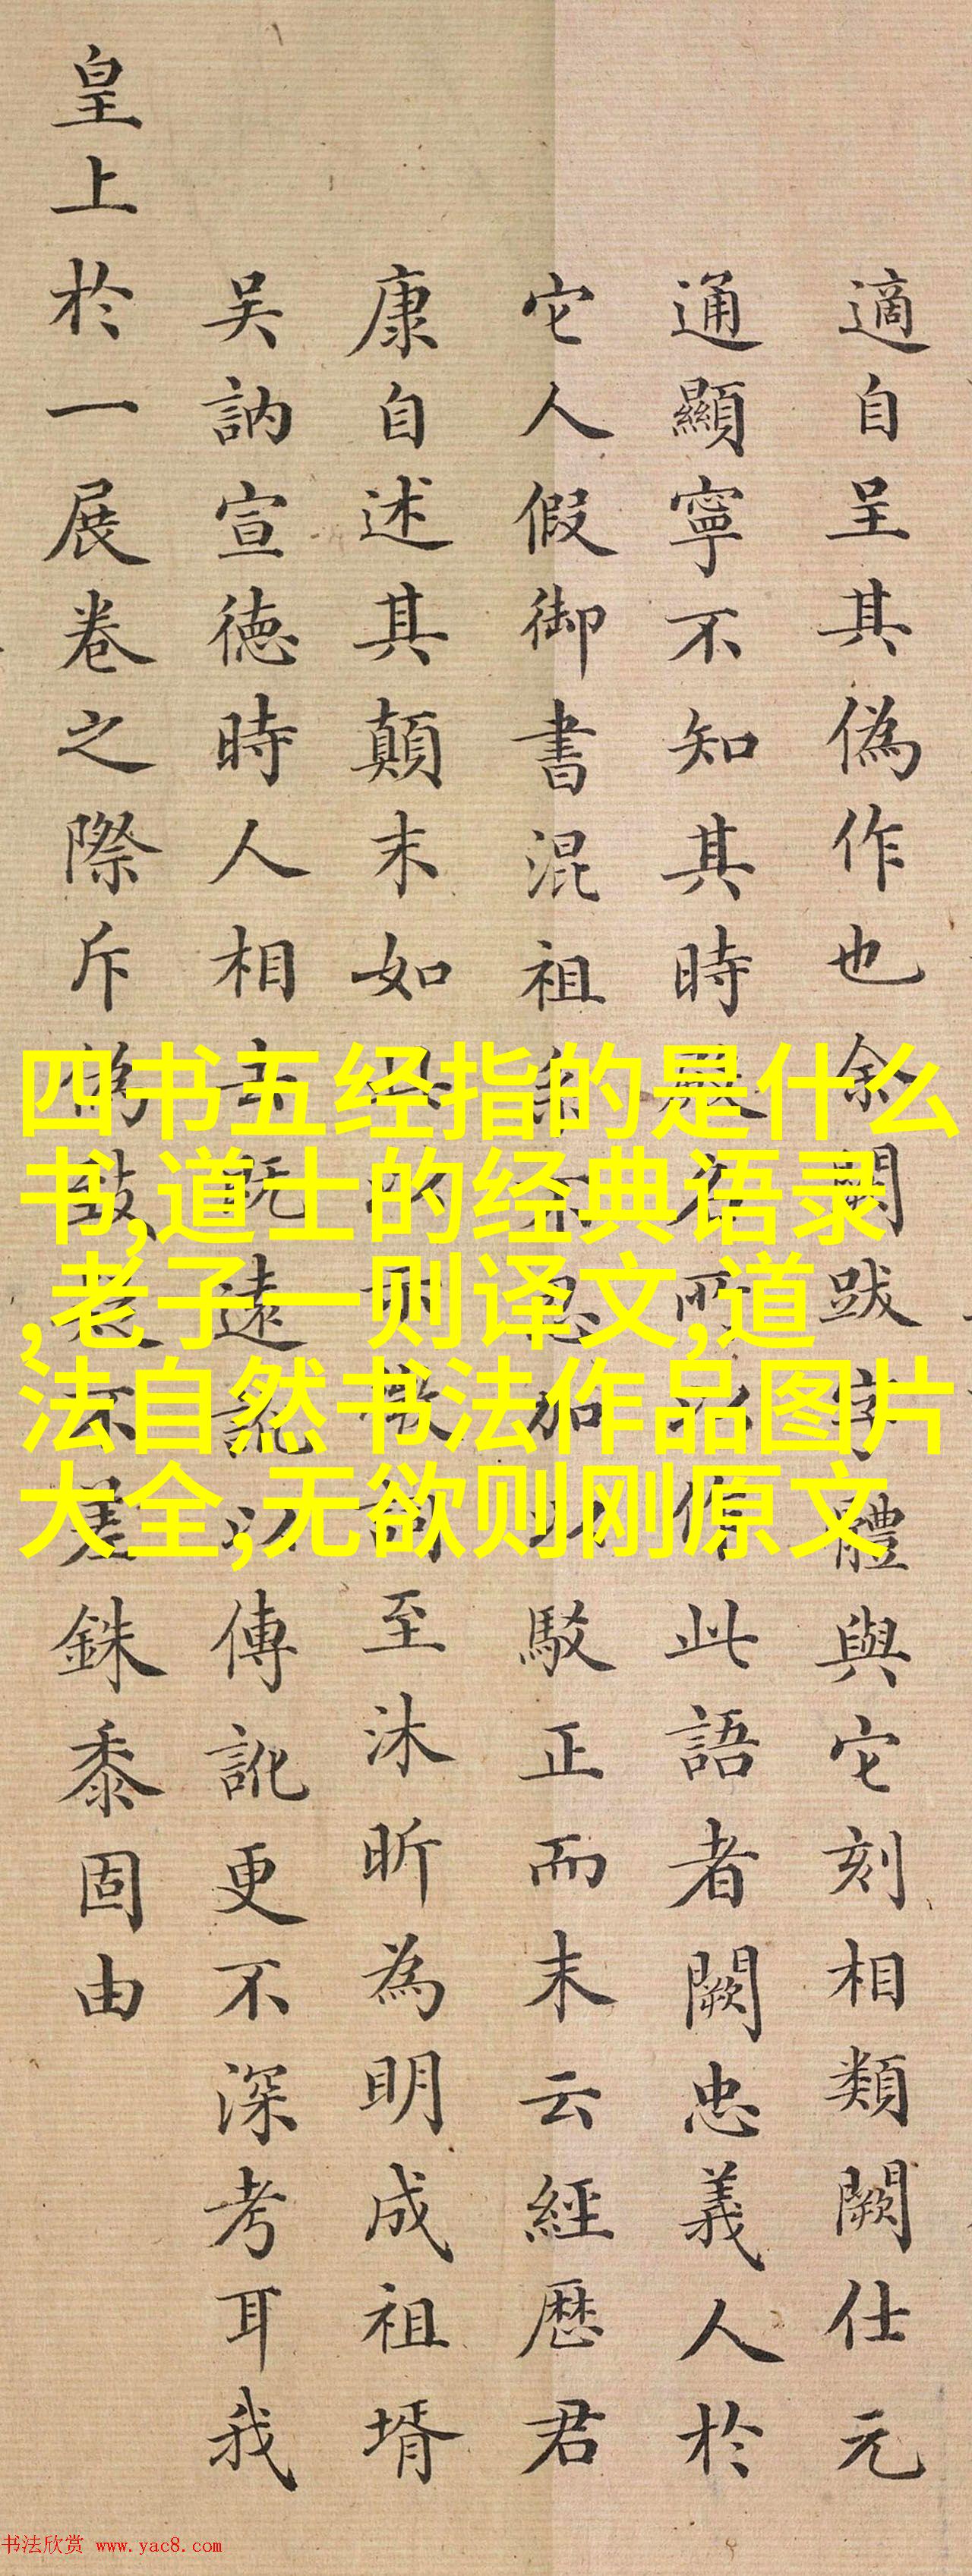 適自呈其偽作也余闕跋字體與它刻相類闕仕元
通顯寧不知其時
此語者闕忠義人於
它人假御書混祖
駁正而末云經歷君
康自述其顛末如
至沐昕為明成祖壻
吴訥宣德時人相
遠
傳訛更不深考耳我
皇上於一展卷之際斥
銖黍固由
四书五经指的是什么
书,道士的经典语录
,老子一则译文,道
法自然书法作品图片
大全,无欲则刚原文
书法欣赏 www.yac8.com